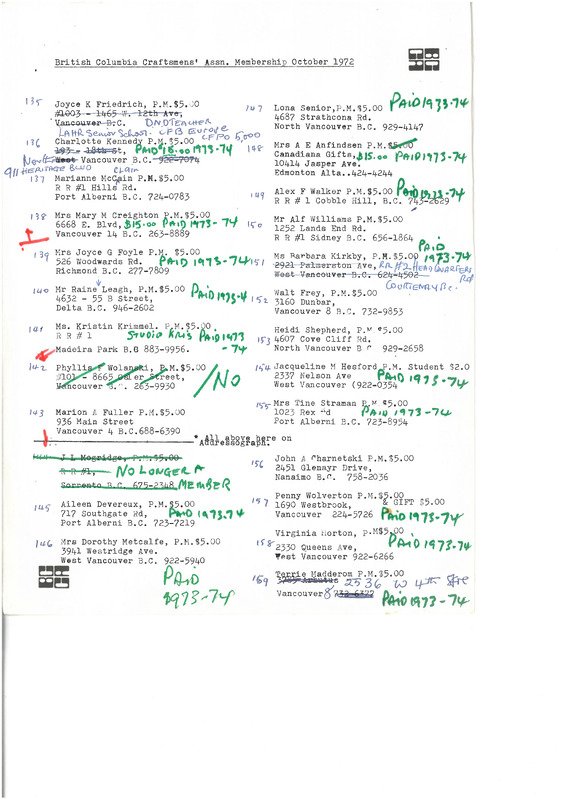 British Columbia Craftsmens' Assn. Membership October 1972
135 Joyce K Friedrich, P.M.$5.00
#1003 - 1465 W. 12th Ave,
Vancouver B.C. DND TEACHER
LAHR Senior School. CFB Europe
CFPO 5,000
136 Charlotte Kennedy P.M.$5.00
193 - 18th St, PAID 15.00 1973-74
North West Vancouver B.C. 922-7074
911 HERITAGE BLVD
137 Marianne McCain P.M.$5.00
R R #1 Hills Rd.
Port Alberni B.C. 724-0783
138 Mrs Mary M Creighton P.M.$5.00
6668 E. Blvd, $15.00 PAID 1973-74
Vancouver 14 B.C. 263-8889
139 Mrs Joyce G Foyle P.M.$5.00
526 Woodwards Rd. PAID 1973-74
Richmond B.C. 277-7809
140 Mr Raine Leagh, P.M.$5.00
4632 - 55 B Street, PAID 1973-4
Delta B.C. 946-2602
141 Ms. Kristin Krimmel. P.M.$5.00
R R # 1 STUDIO KRIS PAID 1973
-74
Madeira Park B.C 883-9956.
142 Phyllis F Wolanski, P.M.$5.00
8665 Street, /NO
263-9930
143 Marion A Fuller P.M.$5.00
936 Main Street
Vancouver 4 B.C.688-6390
* All above here on
Addressograph.
J L Mogridge, P.M.$5.00
R R #1, NO LONGER A
Sorrento B.C. 675-2348 MEMBER
145 Aileen Devereux, P.M.$5.00
717 Southgate Rd, PAID 1973-74
Port Alberni B.C. 723-7219
146 Mrs Dorothy Metcalfe, P.M.$5.00
3941 Westridge Ave.
West Vancouver B.C. 922-5940
PAID
1973-74
147 Lona Senior,P.M.$5.00 PAID 1973-74
4687 Strathcona Rd.
North Vancouver B.C. 929-4147
148 Mrs A E Anfindsen P.M.$5.00
Canadiana Gifts, $15.00 PAID 1973-74
10414 Jasper Ave.
Edmonton Alta..424-4244
149 Alex F Walker P.M.$5.00 PAID 1973-74
R R # 1 Cobble Hill, B.C. 743-2629
150 Mr Alf Williams P.M.$5.00
1252 Lands End Rd.
R R #1 Sidney B.C. 656-1864
151 Ms Barbara Kirkby, P.M.$5.00 PAID 1973-74
2921 Ave, RR #2 HEADQUARTERS Rd
West Vancouver B.C. 624-4502
COURTENAY B.C.
152 Walt Frey, P.M.$5.00
3160 Dunbar,
Vancouver 8 B.C. 732-9853
153 Heidi Shepherd, P.M $5.00
4607 Cove Cliff Rd.
North Vancouver B C 929-2658
154 Jacqueline M Hesford P.M. Student $2.0
2337 Nelson Ave PAID 1973-74
West Vancouver (922-0354
155 Mrs Tine Straman P.M $5.00
1023 Rex Rd PAID 1973-74
Port Alberni B.C. 723-8954
156 John A Charnetski P.M.$5.00
2451 Glenayr Drive,
Nanaimo B.C. 758-2036
157 Penny Wolverton P.M.$5.00
1690 Westbrook, & GIFT $5.00
Vancouver 224-5726 PAID 1973-74
158 Virginia Horton, P.M$5.00
2330 Queens Ave, PAID 1973-74
West Vancouver 922-6266
159 Terrie Madderom P.M.$5.00
Arbutus 2536 W 4th
Vancouver 8 732-6322 PAID 1973-74